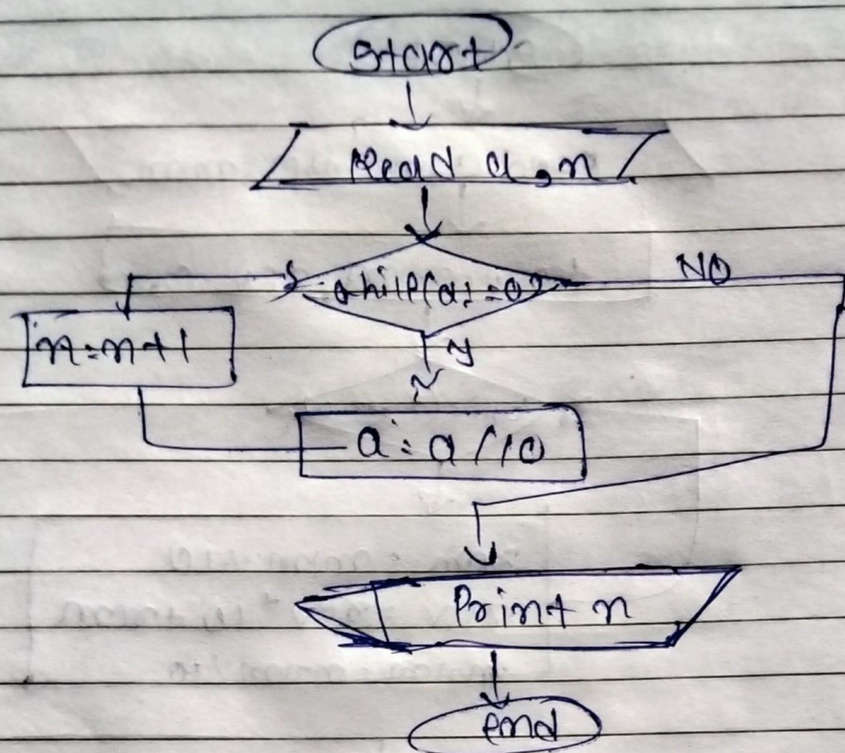 Start
Read a, n
while(a! = 0)
NO
n = n+1
y
a = a/10
Print n
end